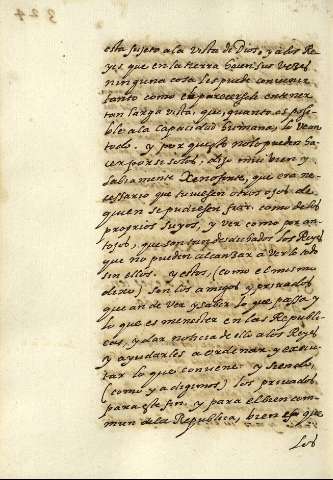 324
esta sujeto a la vista de Dios, y a los Re
yes que en la tierra hacen sus vezes
ninguna cosa les puede convenir
tanto como en parecersele en tener
tan larga vista, que, quanto es posi
ble a la Capacidad humana, lo vean
todo. y por que esto no lo pueden ha
cer por si solos, dijo mui bien y
sabiamente Xenofonte, que era ne
cessario que tuviesen otros ojos de
quien se pudiesen fiar, como de los
proprios suyos, y ver como por an
tojos, que son tan desdichados los Reyes
que no pueden alcanzar a verlo todo
sin ellos. y estos, (como el mismo
dixo) son los amigos y privados
que an de ver y saber lo que passa y
lo que es menester en las Republi
cas, y dar noticia de ello a los Reyes
y ayudarles a ordenar, y execu
tar lo que conviene. y siendo,
(como ya digimos) los privados
para este fin, y para el bien com
mun de la Republica, bien es que
los